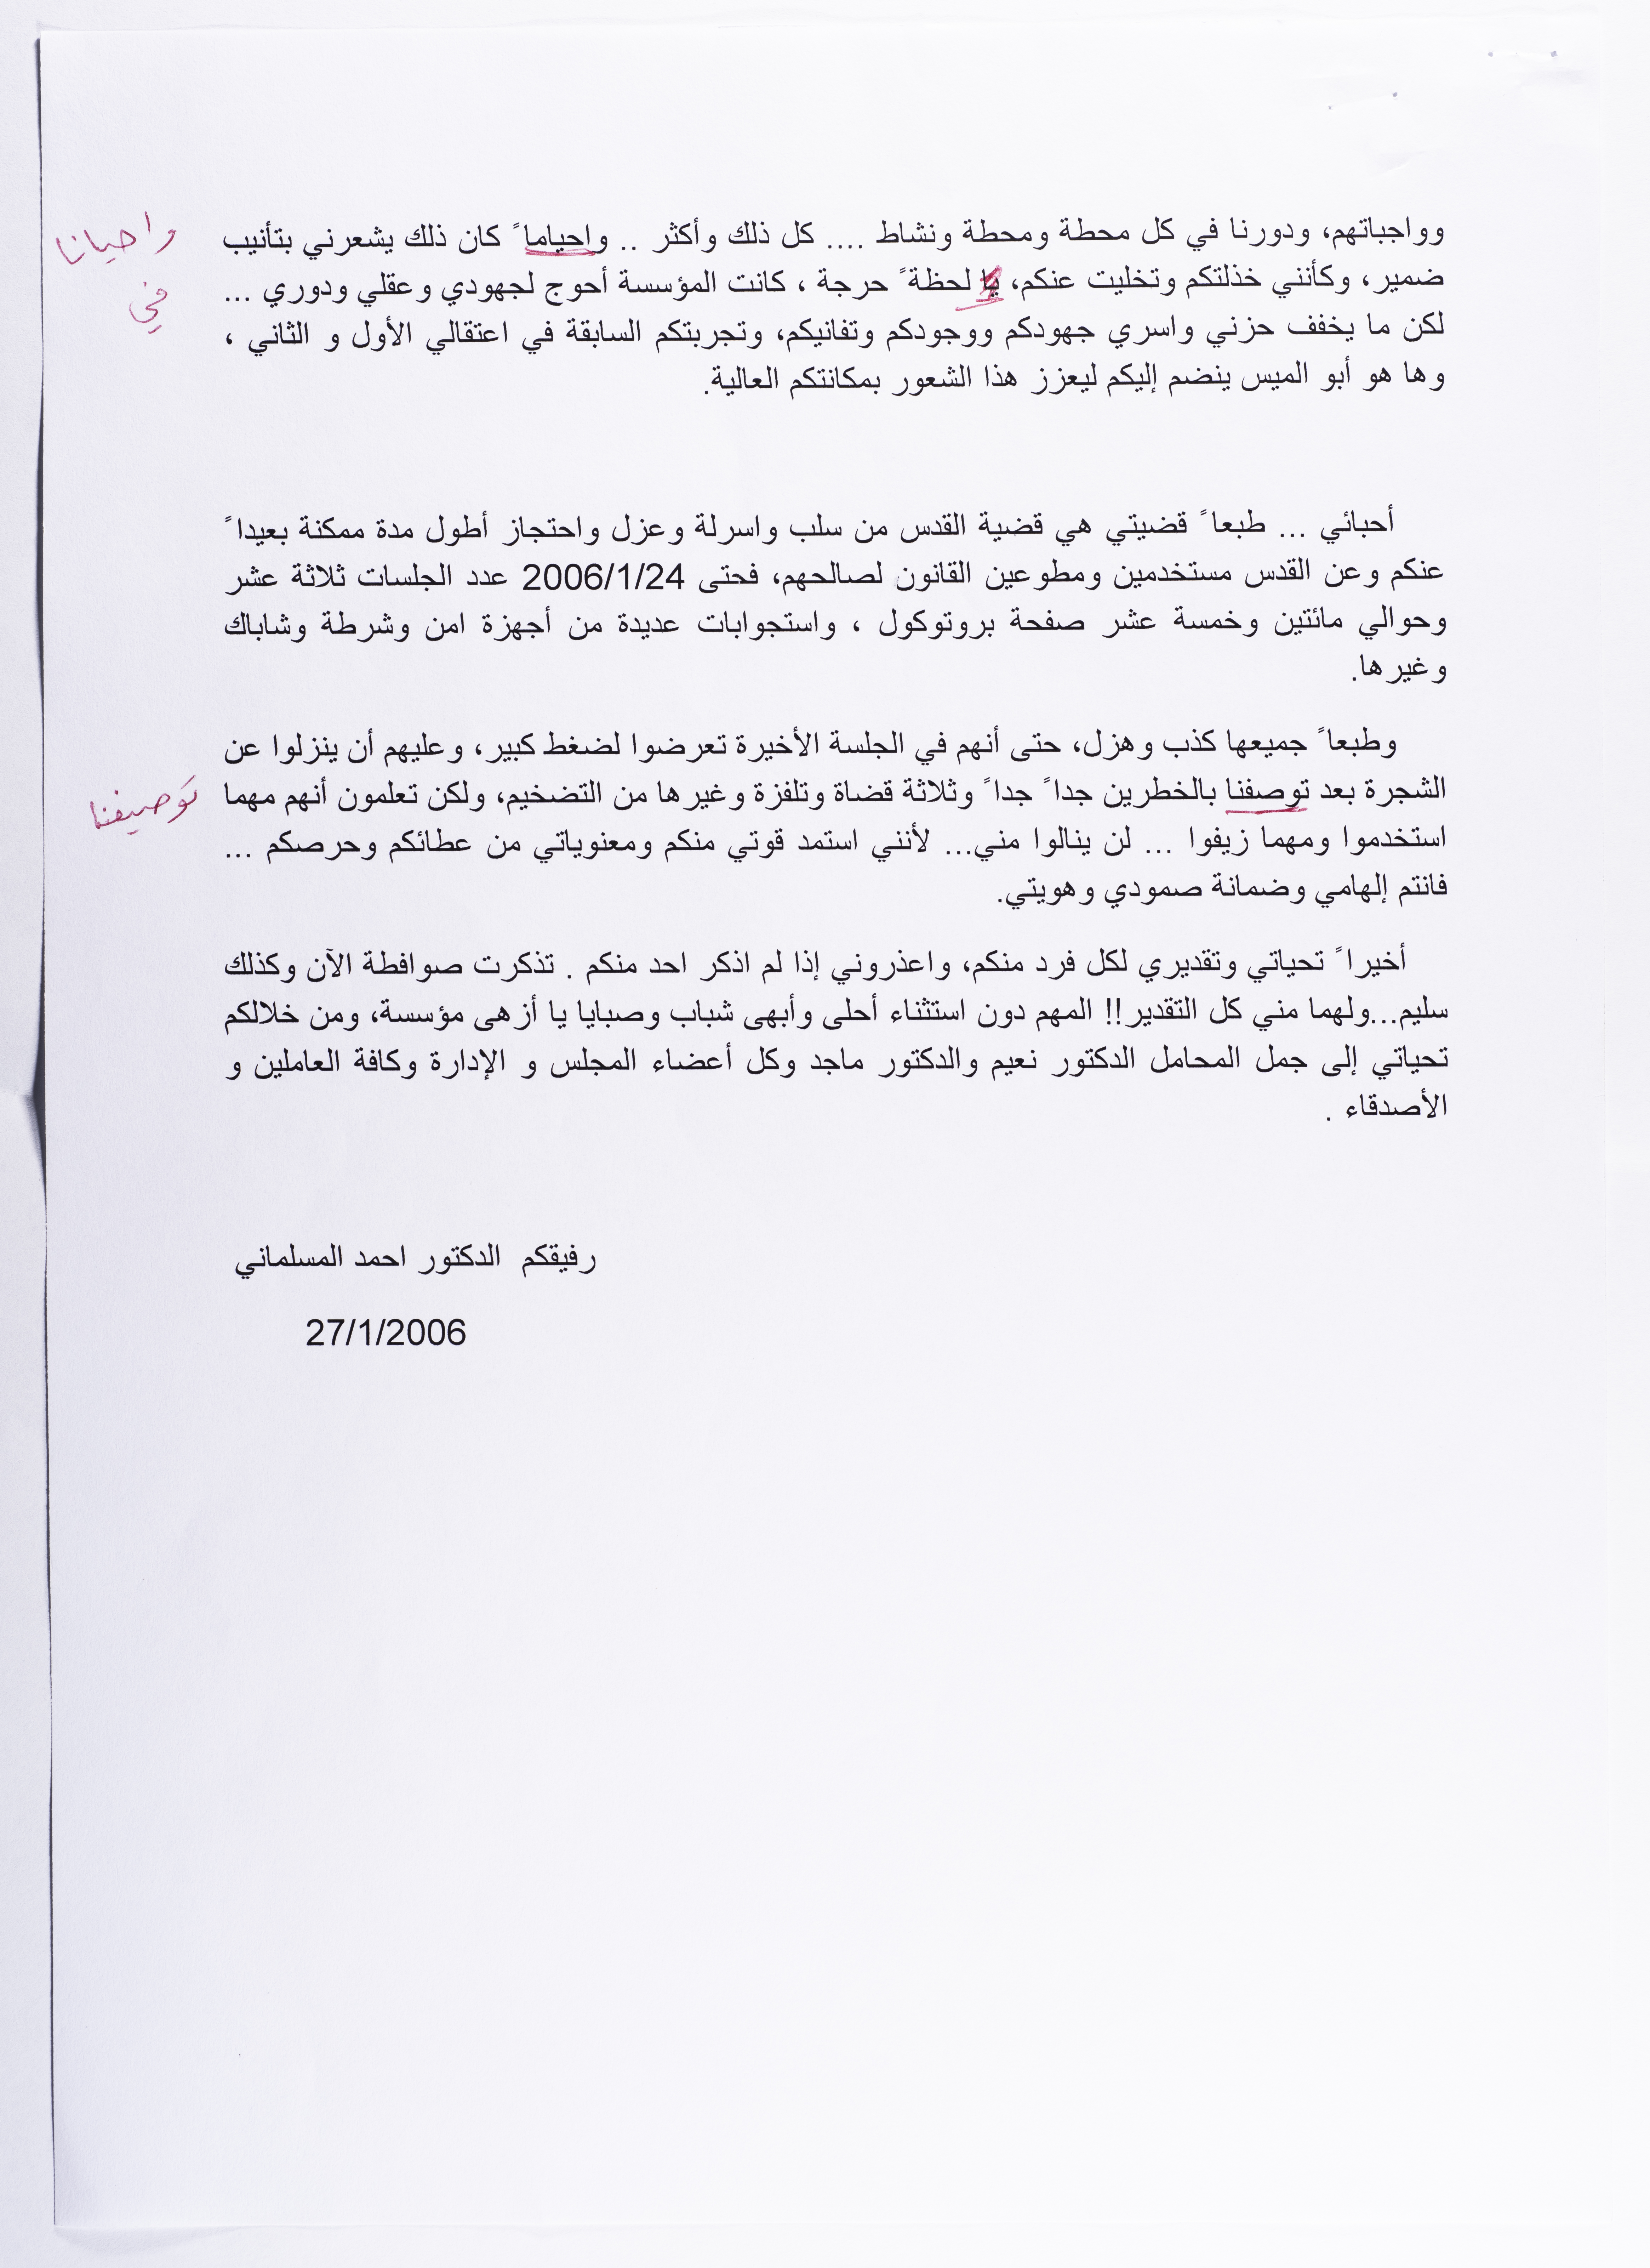 وواجباتهم، ودورنا في كل محطة ومحطة ونشاط .... كل ذلك وأكثر .. واحياماً كان ذلك يشعرني بتأنيب
واحيانا
ضمير، وكأنني خذلتكم وتخليت عنكم، يا لحظةً حرجة ، كانت المؤسسة أحوج لجهودي وعقلي ودوري ...
في
لكن ما يخفف حزني واسري جهودكم ووجودكم وتفانيكم، وتجربتكم السابقة في اعتقالي الأول و الثاني ،
وها هو أبو الميس ينضم إليكم ليعزز هذا الشعور بمكانتكم العالية.
أحبائي ... طبعاً قضيتي هي قضية القدس من سلب واسرلة وعزل واحتجاز أطول مدة ممكنة بعيداً
عنكم وعن القدس مستخدمين ومطوعين القانون لصالحهم، فحتى 2006/1/24 عدد الجلسات ثلاثة عشر
وحوالي مائتين وخمسة عشر صفحة بروتوكول ، واستجوابات عديدة من أجهزة امن وشرطة وشاباك
وغيرها.
وطبعاً جميعها كذب وهزل، حتى أنهم في الجلسة الأخيرة تعرضوا لضغط كبير، وعليهم أن ينزلوا عن
الشجرة بعد توصفنا بالخطرين جداً جداً وثلاثة قضاة وتلفزة وغيرها من التضخيم، ولكن تعلمون أنهم مهما
توصيفنا
استخدموا ومهما زيفوا ... لن ينالوا مني... لأنني استمد قوتي منكم ومعنوياتي من عطائكم وحرصكم ...
فانتم إلهامي وضمانة صمودي وهويتي.
أخيراً تحياتي وتقديري لكل فرد منكم، واعذروني إذا لم اذكر احد منكم . تذكرت صوافطة الآن وكذلك
سليم...ولهما مني كل التقدير!! المهم دون استثناء أحلى وأبهى شباب وصبايا يا أزهى مؤسسة، ومن خلالكم
تحياتي إلى جمل المحامل الدكتور نعيم والدكتور ماجد وكل أعضاء المجلس و الإدارة وكافة العاملين و
الأصدقاء .
رفيقكم الدكتور احمد المسلماني
27/1/2006